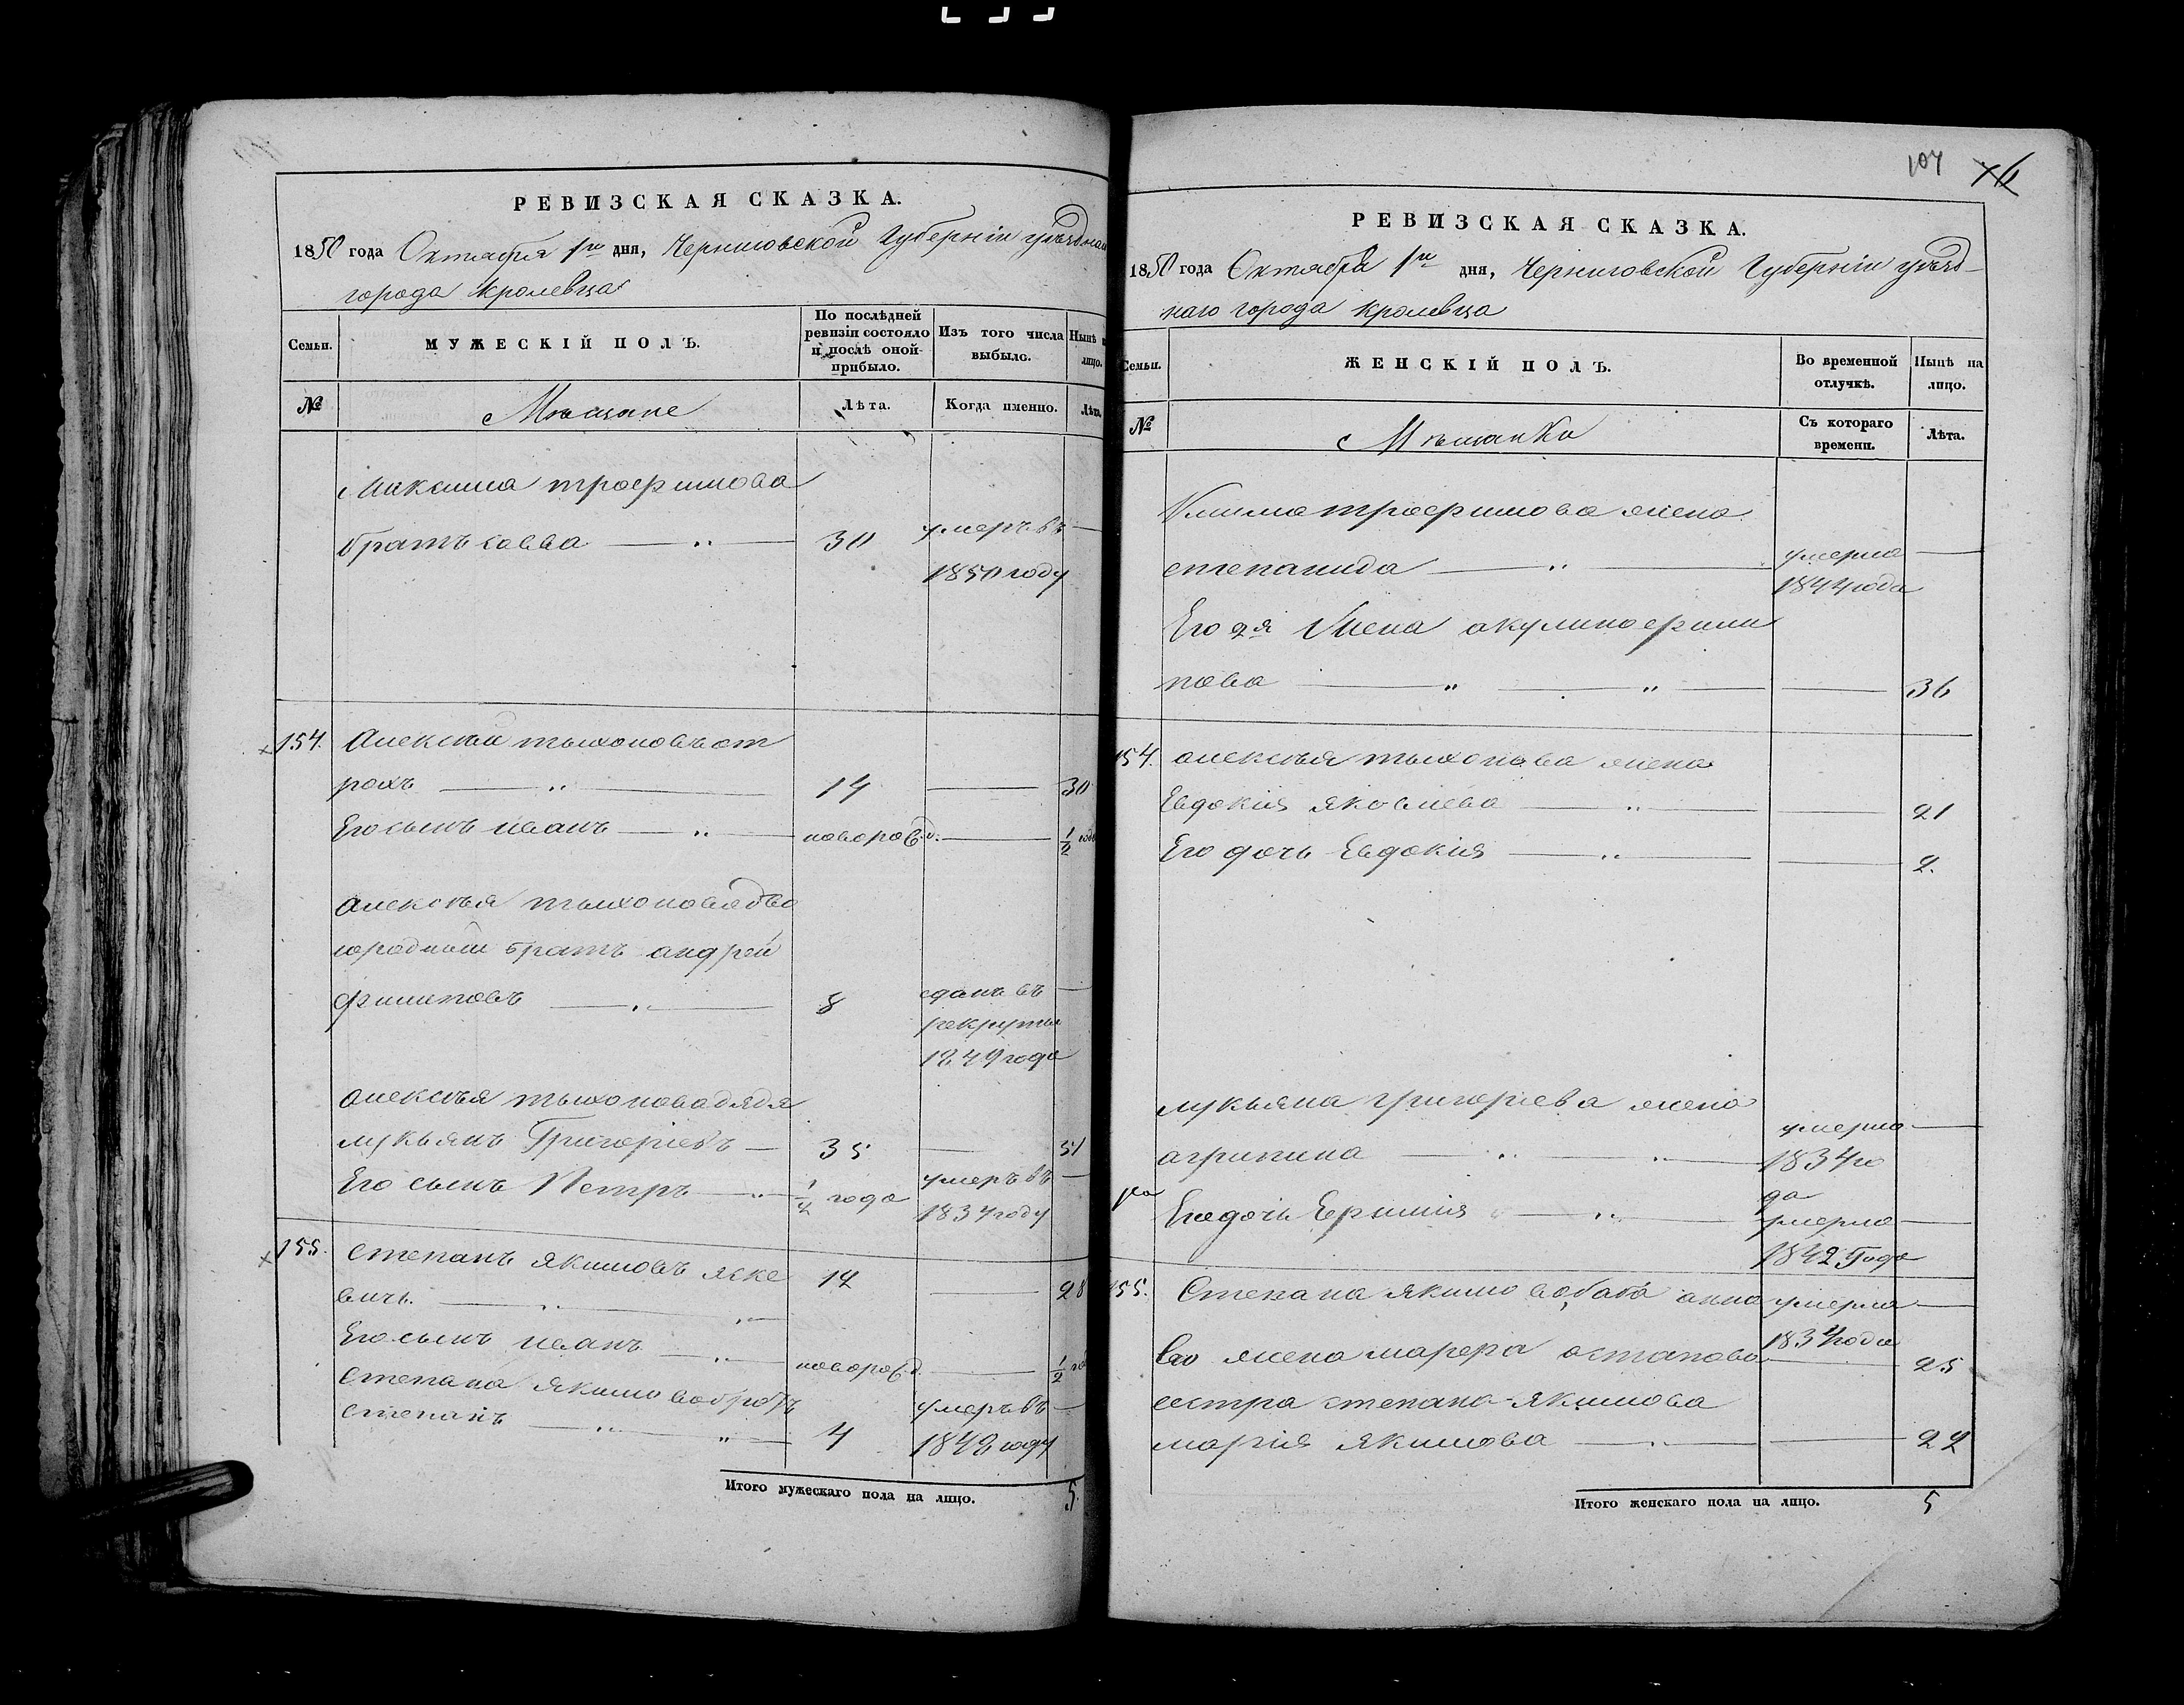 РЕВИЗСКАЯ СКАЗКА.
1850 года Октября 1го дня, Черниговской Губернiи уѣзднаго
города Кролевца
Семьи.
МУЖЕСКІЙ ПОЛЪ.
По послѣдней
ревизіи состояло
и послѣ оной
прибыло.
Изъ того числа
выбыло.
Нынѣ на
лицо.
№
Мѣщане
Лѣта.
Когда именно.
Лѣта.
Максима трофимова
братъ савва 30 умеръ въ
1850 году
154. Алексѣй тихоновъ от
рохъ 14 30
Его сынъ иванъ новорожд. ½ года
алексѣя тихонова дво
юродный братъ андрей
филиповъ 8 сданъ въ
рекруты
1849 года
алексѣя тихонова дядя
лукьянъ Григоріевъ 35 51
Его сынъ Петръ ½ года умеръ въ
1837 году
155. степанъ якимовъ яске
вичъ. 12 28
Его сынъ иванъ новорожд. ½ год
степана якимова братъ
степанъ 4 умеръ въ
1842 году
Итого мужескаго пола на лицо. 5.
107 76
РЕВИЗСКАЯ СКАЗКА.
1850 года Октября 1го дня, Черниговской Губерніи уѣзд-
наго города кролевца
Семьи.
ЖЕНСКІЙ ПОЛЪ.
Во временной
отлучкѣ.
Нынѣ на
лицо.
№
Мѣщанки
Съ котораго
времени.
Лѣта.
трофимова жена
степанида умерла
1844 года
Его 2я жена акулина ефими
нова 36
154. алексѣя тихонова жена
Евдокія яковлева 21
Его дочь Евдокія 2.
лукьяна григоріева жена
агрипина умерла
1834 го
да
Его дочь Ефимия умерла
1842 года
155. Степана якимова баба анна умерла
1834 года
Его жена марфа остапова 25
сестра степана якимова
марія якимова 22
Итого женскаго пола на лицо. 5